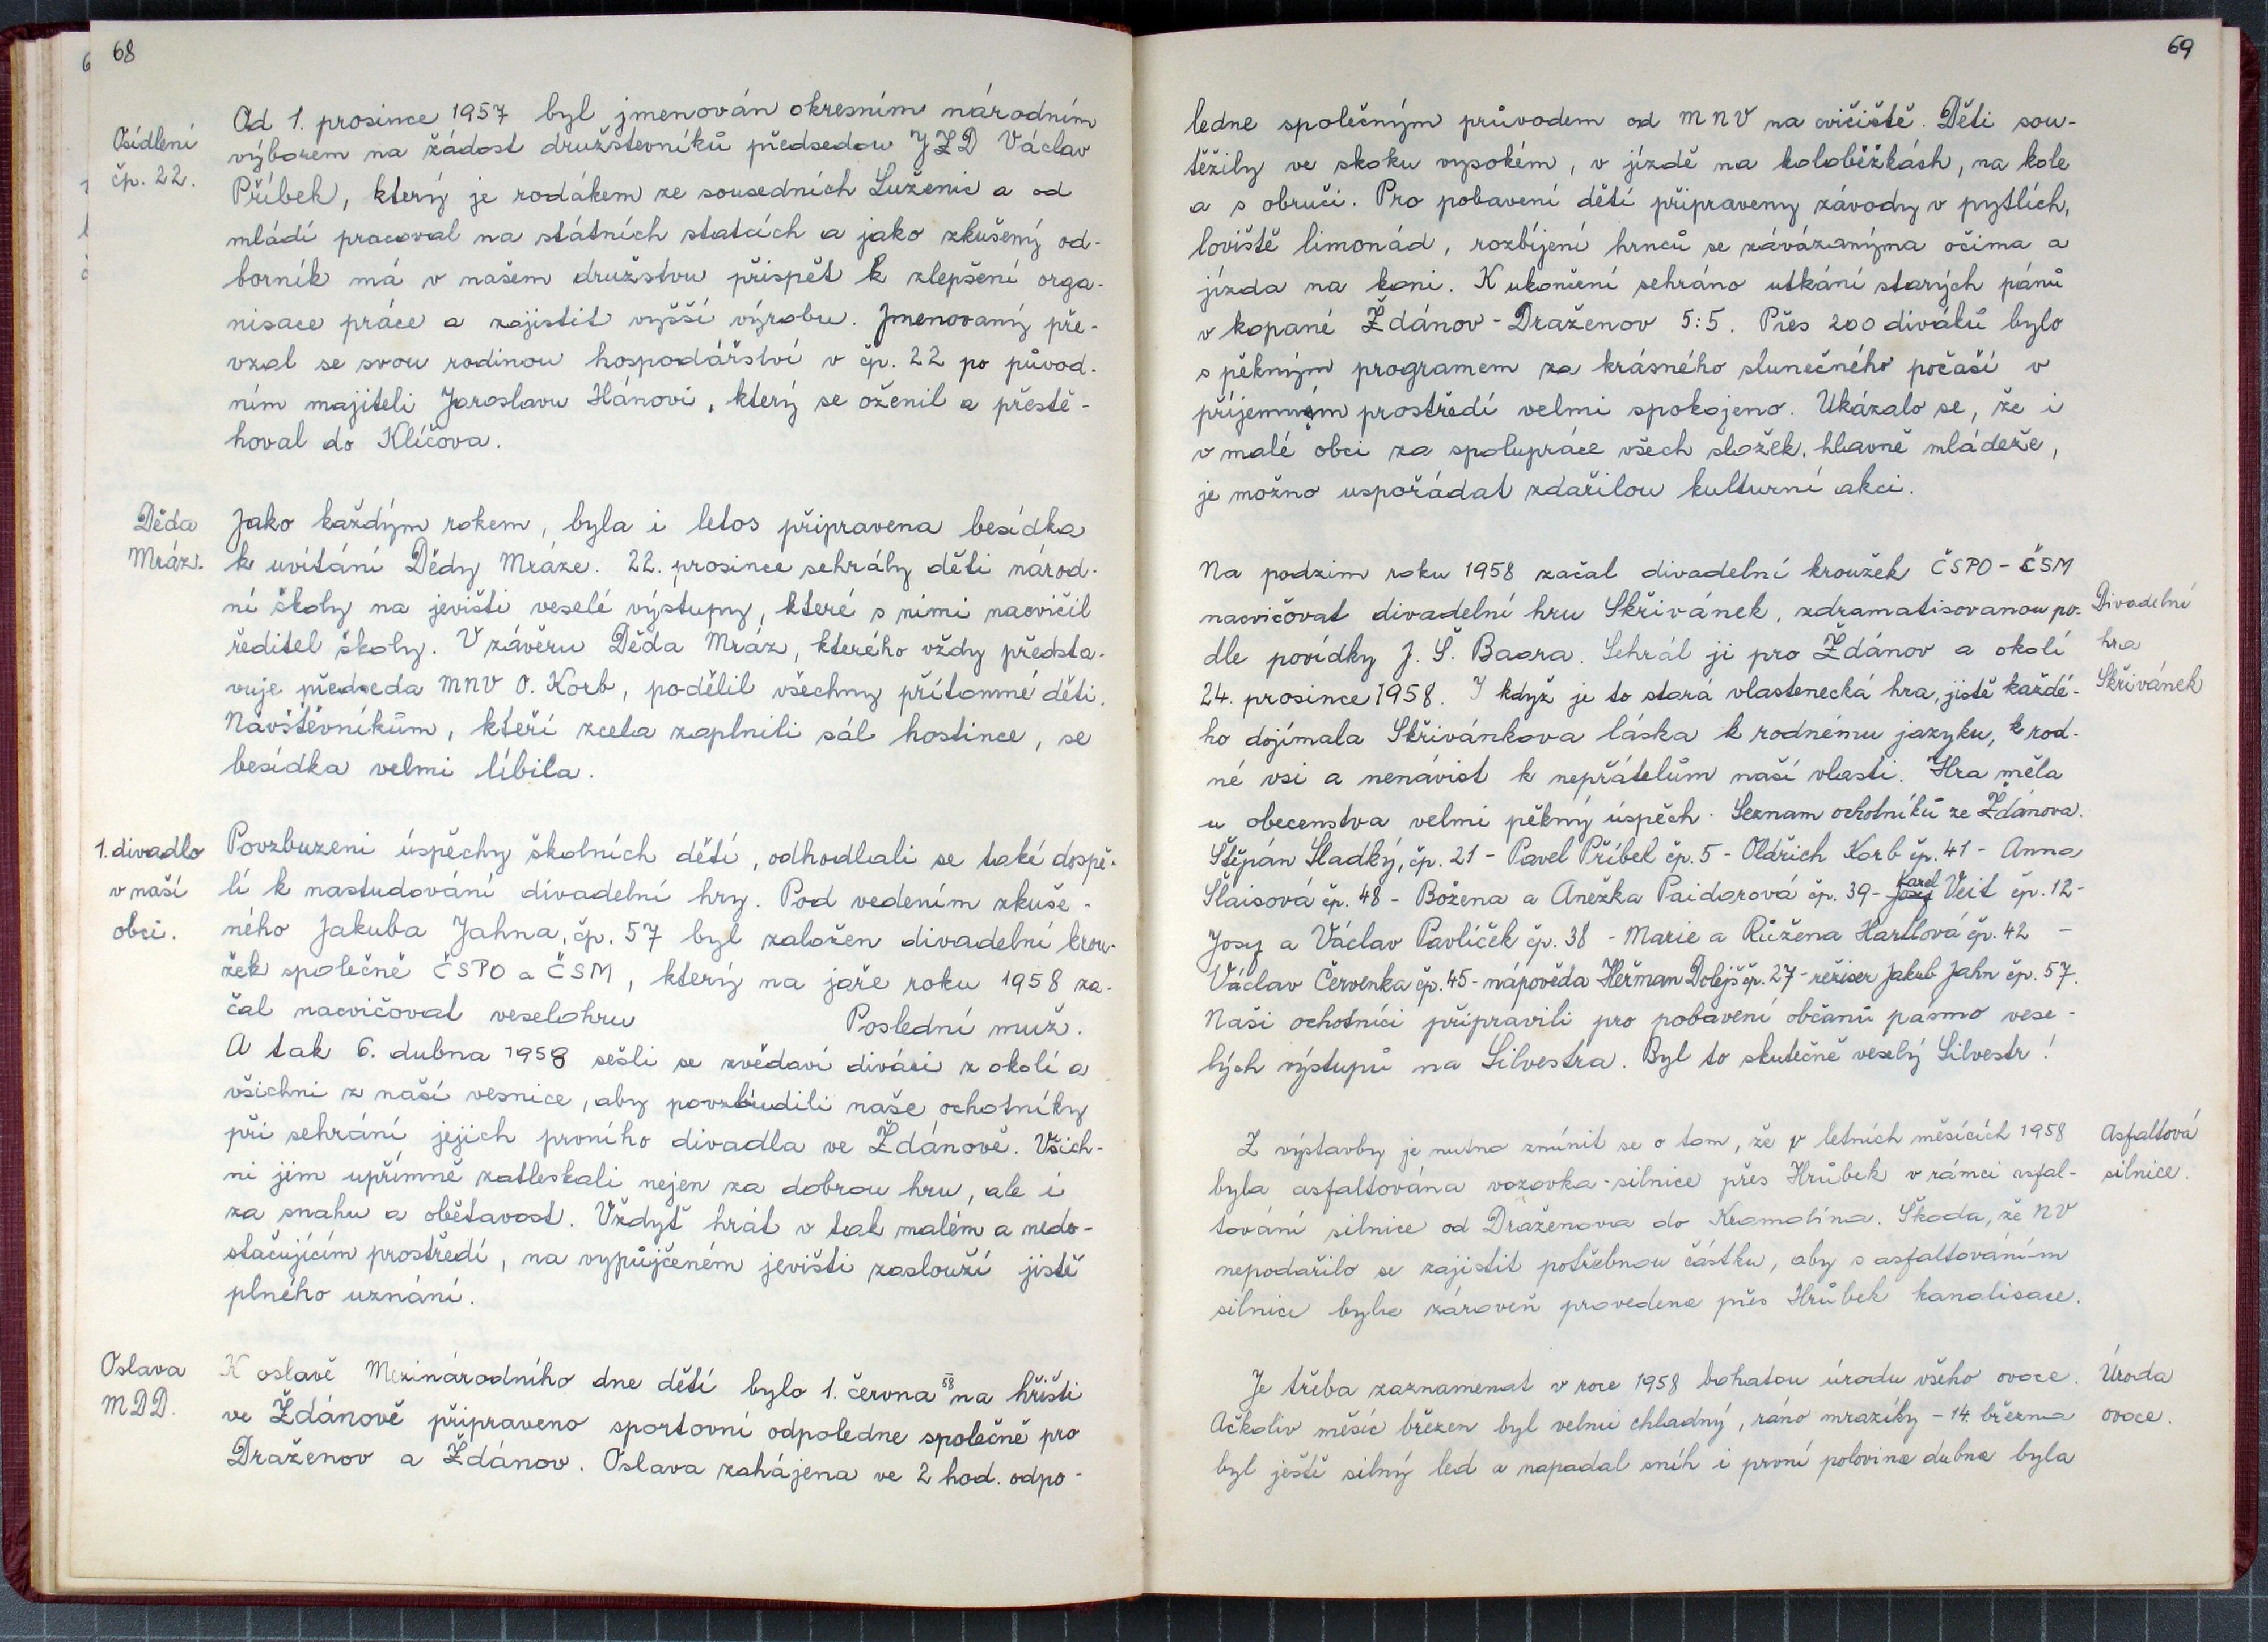 68
Osídlení
čp. 22.
Od 1. prosince 1957 byl jmenován okresním národním
výborem na žádost družstevníků předsedou JZD Václav
Příbek, který je rodákem ze sousedních Luženic a od
mládí pracoval na státních statcích a jako zkušený od-
borník má v našem družstvu přispět k zlepšení orga-
nisace práce a zajistit vyšší výrobu. Jmenovaný pře-
vzal se svou rodinou hospodářství v čp. 22 po původ-
ním majiteli Jaroslavu Hánovi, který se oženil a přestě-
hoval do Klíčova.
Děda
Mráz.
Jako každým rokem, byla i letos připravena besídka
k uvítání Dědy Mráze. 22. prosince sehrály děti národ-
ní školy na jevišti veselé výstupy, které s nimi nacvičil
ředitel školy. V závěru Děda Mráz, kterého vždy předsta-
vuje předseda MNV O. Korb, podělil všechny přítomné děti.
Návštěvníkům, kteří zcela zaplnili sál hostince, se
besídka velmi líbila.
1. divadlo
v naší
obci.
Povzbuzeni úspěchy školních dětí, odhodlali se také dospě-
lí k nastudování divadelní hry. Pod vedením zkuše-
ného Jakuba Jahna, čp. 57 byl založen divadelní krou-
žek společně ČSPO a ČSM, který na jaře roku 1958 za-
čal nacvičovat veselohru Poslední muž.
A tak 6. dubna 1958 sešli se zvědaví diváci z okolí a
všichni z naší vesnice, aby povzbudili naše ochotníky
při sehrání jejich prvního divadla ve Ždánově. Všich-
ni jim upřímně zatleskali nejen za dobrou hru, ale i
za snahu a obětavost. Vždyť hrát v tak malém a nedo-
stačujícím prostředí, na vypůjčeném jevišti zaslouží jistě
plného uznání.
Oslava
MDD.
K oslavě Mezinárodního dne dětí bylo 1. června 58 na hřišti
ve Ždánově připraveno sportovní odpoledne společně pro
Draženov a Ždánov. Oslava zahájena ve 2 hod. odpo-
69
ledne společným průvodem od MNV na cvičiště. Děti sou-
těžily ve skoku vysokém, v jízdě na koloběžkách, na kole
a s obručí. Pro pobavení dětí připraveny závody v pytlích,
loviště limonád, rozbíjení hrnců se zavázanýma očima a
jízda na koni. K ukončení sehráno utkání starých pánů
v kopané Ždánov - Draženov 5:5. Přes 200 diváků bylo
s pěkným programem za krásného slunečného počasí v
příjemném prostředí velmi spokojeno. Ukázalo se, že i
v malé obci za spolupráce všech složek, hlavně mládeže,
je možno uspořádat zdařilou kulturní akci.
Na podzim roku 1958 začal divadelní kroužek ČSPO - ČSM
nacvičovat divadelní hru Skřivánek, zdramatisovanou po-
dle povídky J. Š. Baara. Sehrál ji pro Ždánov a okolí
24. prosince 1958. I když je to stará vlastenecká hra, jistě každé-
ho dojímala Skřivánkova láska k rodnému jazyku, k rod-
né vsi a nenávist k nepřátelům naší vlasti. Hra měla
u obecenstva velmi pěkný úspěch. Seznam ochotníků ze Ždánova.
Štěpán Sladký, čp. 21 - Pavel Příbek čp. 5 - Oldřich Korb čp. 41 - Anna
Šlaisová čp. 48 - Božena a Anežka Paidarová čp. 39 - Josef Karel Veit čp. 12 -
Josef a Václav Pavlíček čp. 38 - Marie a Růžena Hartlová čp. 42 -
Václav Červenka čp. 45 - nápověda Heřman Dolejš čp. 27 - režiser Jakub Jahn čp. 57.
Naši ochotníci připravili pro pobavení občanů pásmo vese-
lých výstupů na Silvestra. Byl to skutečně veselý Silvestr!
Divadelní
hra
Skřivánek
Z výstavby je nutno zmínit se o tom, že v letních měsících 1958
byla asfaltována vozovka - silnice přes Hrůbek v rámci asfal-
tování silnice od Draženova do Kramolína. Škoda, že NV
nepodařilo se zajistit potřebnou částku, aby s asfaltováním
silnice byla zároveň provedena přes Hrůbek kanalisace.
Asfaltová
silnice.
Je třeba zaznamenat v roce 1958 bohatou úrodu všeho ovoce.
Ačkoliv měsíc březen byl velmi chladný, ráno mrazíky - 14. března
byl ještě silný led a napadal sníh i první polovina dubna byla
Úroda
ovoce.